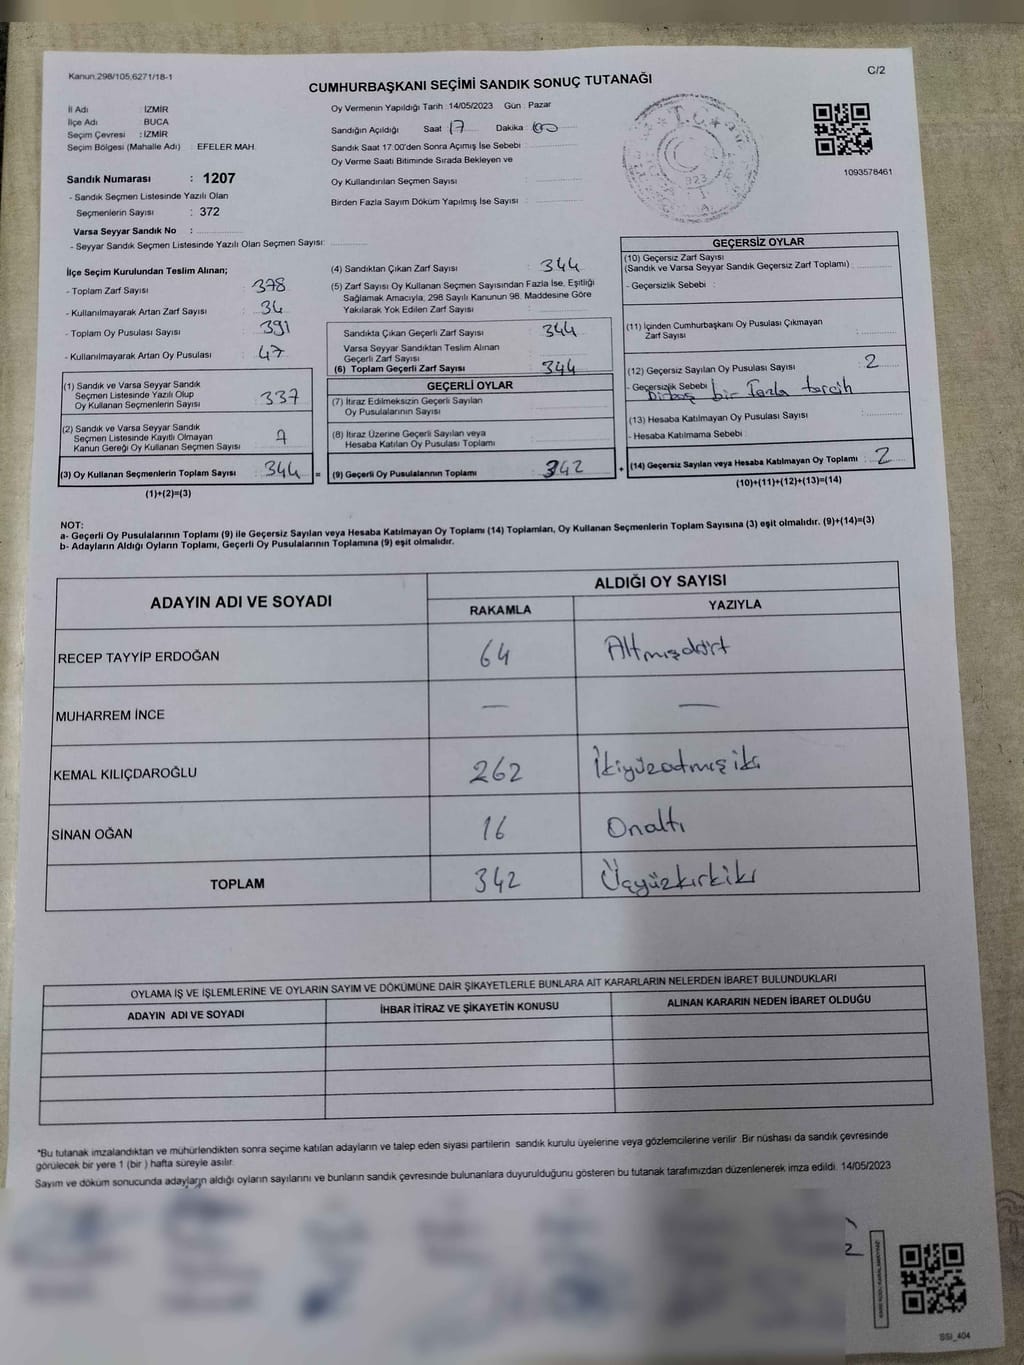 Kanun.298/105,6271/18-1
C/2
CUMHURBAŞKANI SEÇİMİ SANDIK SONUÇ TUTANAĞI
İl Adı : İZMİR
İlçe Adı : BUCA
Seçim Çevresi : İZMİR
Seçim Bölgesi (Mahalle Adı) : EFELER MAH.
Sandık Numarası : 1207
- Sandık Seçmen Listesinde Yazılı Olan
Seçmenlerin Sayısı : 372
Varsa Seyyar Sandık No :
- Seyyar Sandık Seçmen Listesinde Yazılı Olan Seçmen Sayısı:
Oy Vermenin Yapıldığı Tarih :14/05/2023 Gün : Pazar
Sandığın Açıldığı Saat 17 Dakika 00
Sandık Saat 17.00'den Sonra Açımış İse Sebebi
Oy Verme Saati Bitiminde Sırada Bekleyen ve
Oy Kullandırılan Seçmen Sayısı :
Birden Fazla Sayım Döküm Yapılmış İse Sayısı :
T.C.
1093578461
İlçe Seçim Kurulundan Teslim Alınan;
- Toplam Zarf Sayısı : 378
- Kullanılmayarak Artan Zarf Sayısı : 34
- Toplam Oy Pusulası Sayısı : 391
- Kullanılmayarak Artan Oy Pusulası : 47
(1) Sandık ve Varsa Seyyar Sandık
Seçmen Listesinde Yazılı Olup
Oy Kullanan Seçmenlerin Sayısı : 337
(2) Sandık ve Varsa Seyyar Sandık
Seçmen Listesinde Kayıtlı Olmayan
Kanun Gereği Oy Kullanan Seçmen Sayısı : 7
(3) Oy Kullanan Seçmenlerin Toplam Sayısı : 344 =
(1)+(2)=(3)
(4) Sandıktan Çıkan Zarf Sayısı : 344
(5) Zarf Sayısı Oy Kullanan Seçmen Sayısından Fazla İse, Eşitliği
Sağlamak Amacıyla, 298 Sayılı Kanunun 98. Maddesine Göre
Yakılarak Yok Edilen Zarf Sayısı :
Sandıkta Çıkan Geçerli Zarf Sayısı : 344
Varsa Seyyar Sandıktan Teslim Alınan
Geçerli Zarf Sayısı :
(6) Toplam Geçerli Zarf Sayısı : 344
GEÇERLİ OYLAR
(7) İtiraz Edilmeksizin Geçerli Sayılan
Oy Pusulalarının Sayısı :
(8) İtiraz Üzerine Geçerli Sayılan veya
Hesaba Katılan Oy Pusulası Toplamı :
(9) Geçerli Oy Pusulalarının Toplamı : 342 +
GEÇERSİZ OYLAR
(10) Geçersiz Zarf Sayısı
(Sandık ve Varsa Seyyar Sandık Geçersiz Zarf Toplamı) :
- Geçersizlik Sebebi :
(11) İçinden Cumhurbaşkanı Oy Pusulası Çıkmayan
Zarf Sayısı :
(12) Geçersiz Sayılan Oy Pusulası Sayısı : 2
- Geçersizlik Sebebi : bir fazla tercih
(13) Hesaba Katılmayan Oy Pusulası Sayısı :
- Hesaba Katılmama Sebebi :
(14) Geçersiz Sayılan veya Hesaba Katılmayan Oy Toplamı : 2
(10)+(11)+(12)+(13)=(14)
NOT:
a- Geçerli Oy Pusulalarının Toplamı (9) ile Geçersiz Sayılan veya Hesaba Katılmayan Oy Toplamı (14) Toplamları, Oy Kullanan Seçmenlerin Toplam Sayısına (3) eşit olmalıdır. (9)+(14)=(3)
b- Adayların Aldığı Oyların Toplamı, Geçerli Oy Pusulalarının Toplamına (9) eşit olmalıdır.
ADAYIN ADI VE SOYADI
ALDIĞI OY SAYISI
RAKAMLA YAZIYLA
RECEP TAYYİP ERDOĞAN 64 Altmışdört
MUHARREM İNCE — —
KEMAL KILIÇDAROĞLU 262 İkiyüzatmışiki
SİNAN OĞAN 16 Onaltı
TOPLAM 342 Üçyüzkırkiki
OYLAMA İŞ VE İŞLEMLERİNE VE OYLARIN SAYIM VE DÖKÜMÜNE DAİR ŞİKAYETLERLE BUNLARA AİT KARARLARIN NELERDEN İBARET BULUNDUKLARI
ADAYIN ADI VE SOYADI İHBAR İTİRAZ VE ŞİKAYETİN KONUSU ALINAN KARARIN NEDEN İBARET OLDUĞU
*Bu tutanak imzalandıktan ve mühürlendikten sonra seçime katılan adayların ve talep eden siyasi partilerin sandık kurulu üyelerine veya gözlemcilerine verilir. Bir nüshası da sandık çevresinde
görülecek bir yere 1 (bir ) hafta süreyle asılır.
Sayım ve döküm sonucunda adayların aldığı oyların sayılarını ve bunların sandık çevresinde bulunanlara duyurulduğunu gösteren bu tutanak tarafımızdan düzenlenerek imza edildi. 14/05/2023
SSI_404